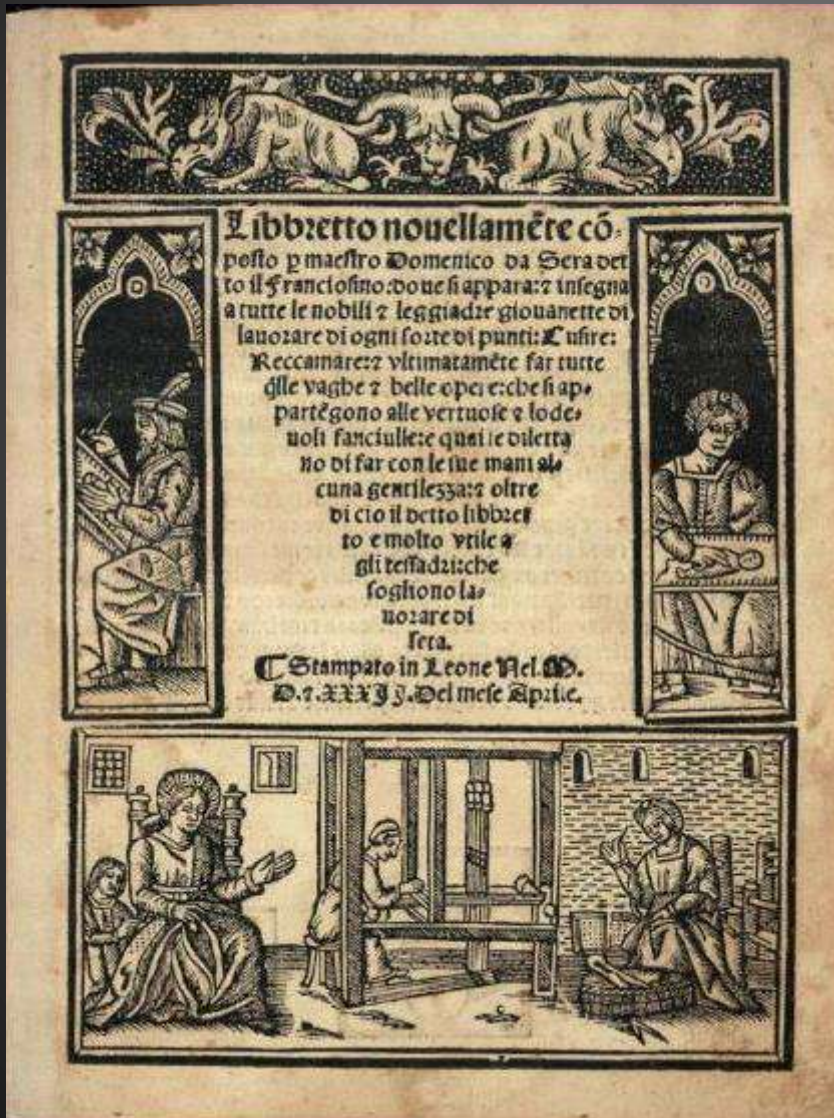 Libbretto nouellamēte cō⸗
posto ꝑ maestro Domenico da Sera det
to il Franciosino: doue si appara: ⁊ insegna
a tutte le nobili ⁊ leggiadre giouanette di
lauorare di ogni sorte di punti: Cusire:
Reccamare: ⁊ vltimatamēte far tutte
q̄lle vaghe ⁊ belle opere: che si ap⸗
partēgono alle vertuose ⁊ lode⸗
uoli fanciulle: e quali e diletta
no di far con le sue mani al⸗
cuna gentilezza: ⁊ oltre
di cio il detto libbret
to e molto vtile a
gli tessadri: che
sogliono la⸗
uorare di
seta.
¶ Stampato in Leone Nel M.
D. ⁊. XXXII. Del mese Aprile.